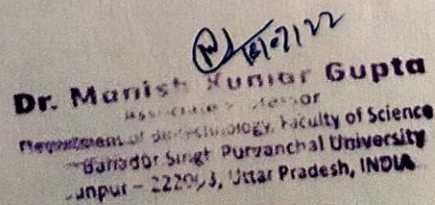 Dr. Manish Kumar Gupta
Associate Professor
Department of Biotechnology, Faculty of Science
Bahador Singh Purvanchal University
Uttar Pradesh, INDIA